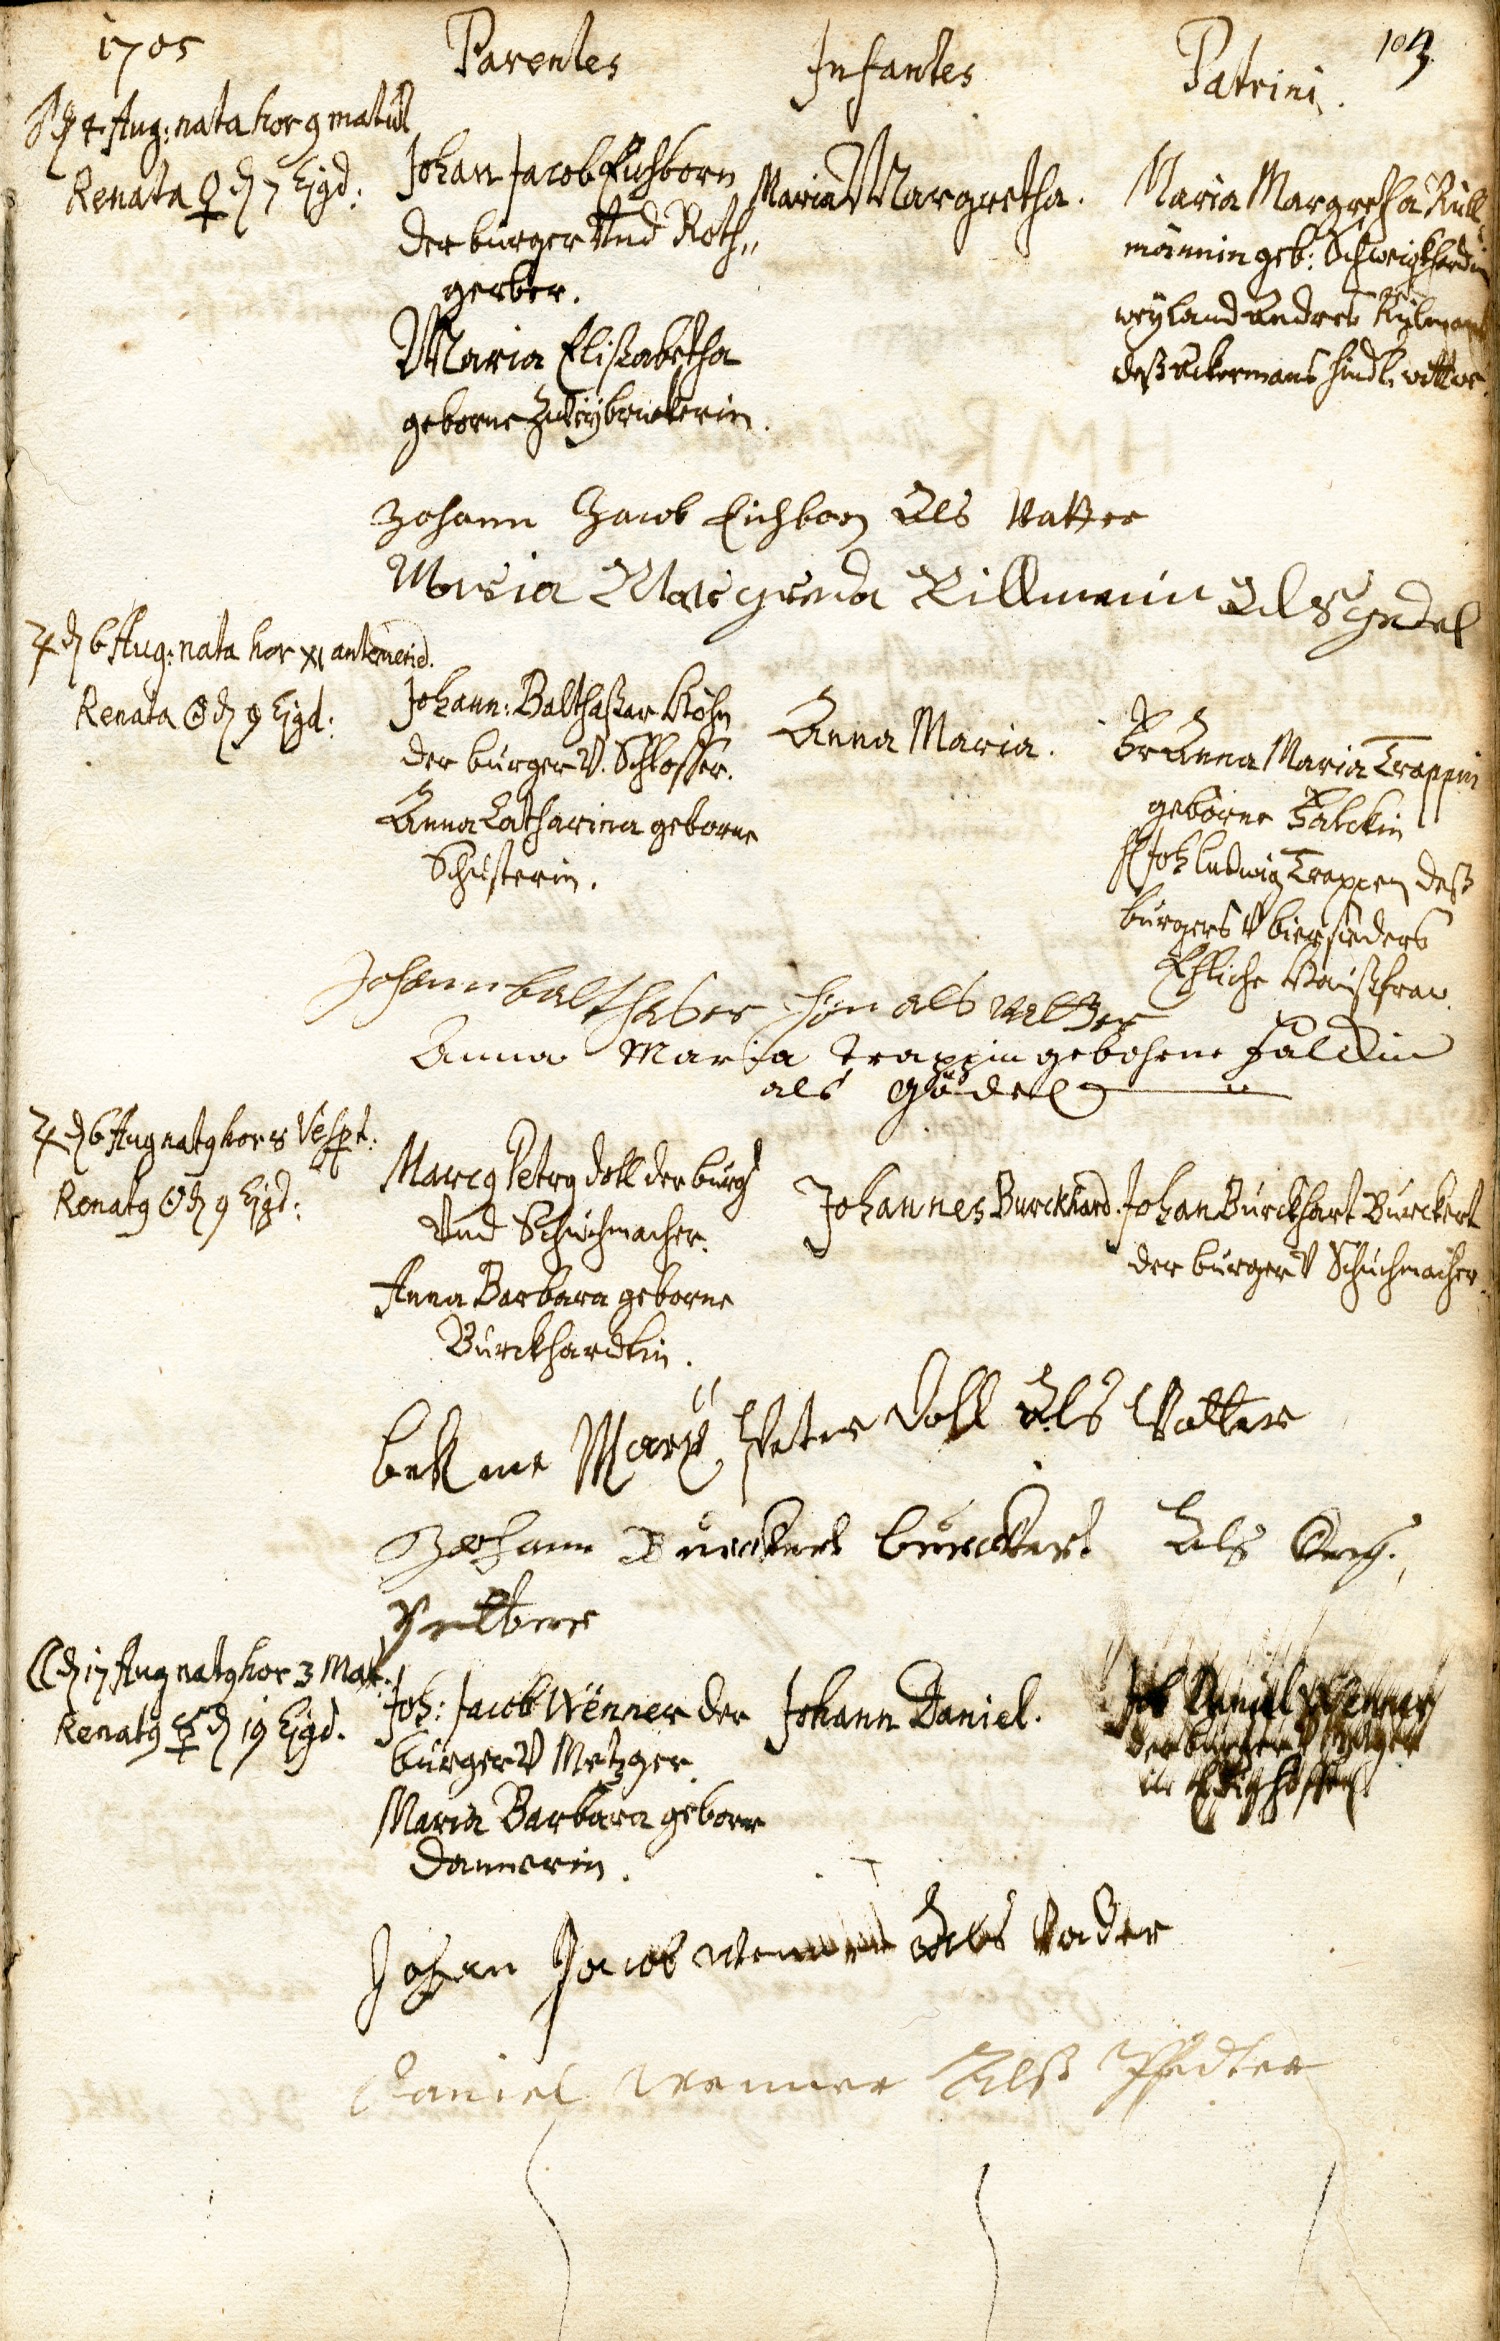 1705
Parentes
Infantes
Patrini.
104
♂ 4 Aug: nata hor 9 matut
Renata ♀ d 7 Ejgd:
Johan Jacob Eichborn
der burger Und Roth„
gerber.
Maria Elisabetha
geborne Zweÿbruckerin.
Maria Margretha.
Maria Margretha Rull„
männin geb: Schweigkhardin
weÿland Andres Rulmans
deß Ackermans hindl. wittwe.
Johann Jacob Eichborn Als Vatter
Maria Margreda Rillmenin Als gedel
♃ d 6 Aug: nata hor XI antemerid.
Renata ☉ d 9 Ejgd:
Johann: Balthaßar Köhn
der burger V. Schlosser.
Anna Catharina geborne
Schusterin.
Anna Maria.
Fr Anna Maria Trappin
geborne Falckin
H Joh Ludwig Trappen deß
burgers V biersieders
Ehliche Haußfraw
Johann balthaser Hön als vatter
Anna Maria Trappin gebohrne Falckin
als Gödel
♃ d 6 Aug naty hor 8 Vespt:
Renaty ☉ d 9 Ejgd:
Marcy Petry doll der burg
Und Schuchmacher.
Anna Barbara geborne
Burckhardtin.
Johannes Burckhard.
Johan Burckhart Burckert
der burger V Schuchmacher
bek me Marx Peter Doll Als Vatter
Johann Burckhert burckert Als
☾ d 17 Aug naty hor 3 Mat.
Renaty ☿ d 19 Ejgd.
Joh: Jacob Wenner der
burger V Metzger.
Maria Barbara geborne
Dannerin.
Johann Daniel.
Joh Daniel Wenner
der burger V Metzger
Johan Jacob wenner Als Vader
Daniel Wenner Alß Pfedter